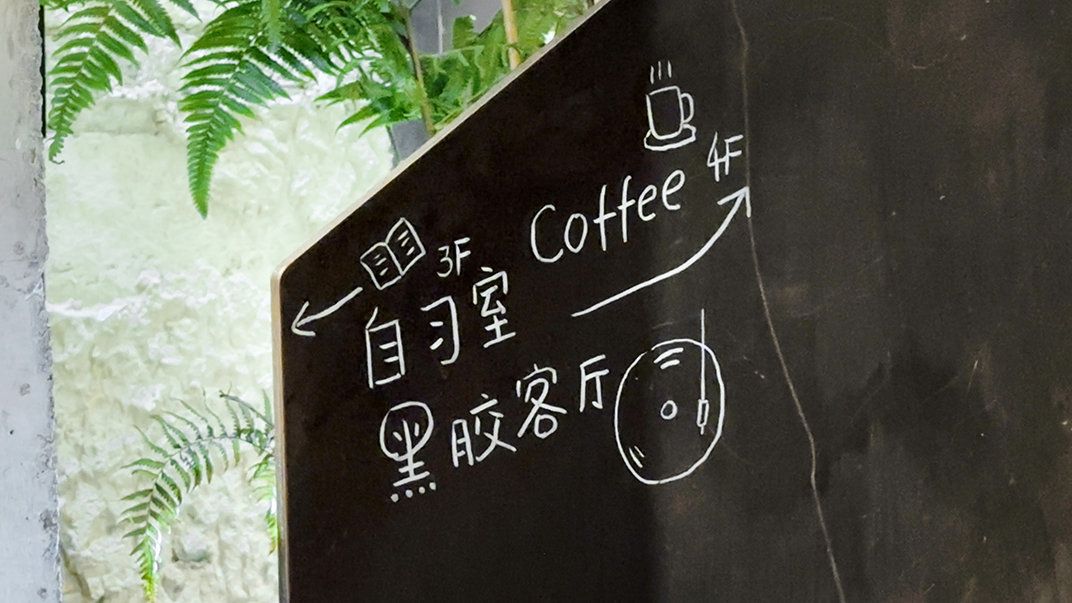 Coffee 4F
3F
自习室
黑胶客厅